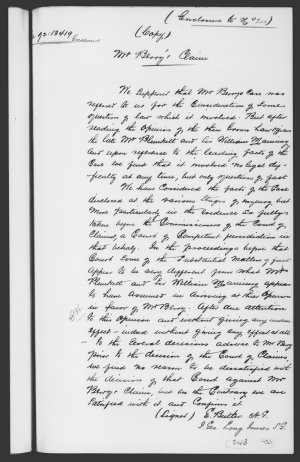 (Enclosure to No
92.13419
Enclosure
(Copy)
Mr Berry's Claim
We suppose that Mr Berry's case was
referred to us for the consideration of some
question of law which it involved. But after
reading the opinion of the then Crown Law Officers
the late Mr Plunkett and Sir William Manning
and upon reference to the leading facts of the
Case we find that it involved no legal dif-
ficulty at any time, but only questions of fact
We have considered the facts of the Case
disclosed at the various stages of inquiry but
more particularly in the evidence so fully
taken before the Commissioners of the Court of
Claims, a Court of Competent jurisdiction in
that behalf. In the proceedings before that
Court some of the substantial matters of fact
appear to be very different from what Mr
Plunkett and Sir William Manning appear
to have assumed in arriving at their Opinion
in favor of Mr Berry. After due attention
to this Opinion and without giving any undue
effect - indeed without giving any effect at all
- to the several decisions adverse to Mr Berry
prior to the decision of the Court of Claims,
we find no reason to be dissatisfied with
the decision of that Court against Mr
Berry's Claim, but on the Contrary we are
satisfied with it and Confirm it
(Signed) E. Butler. A.G.
J. Geo. Long Innes S.G.
243